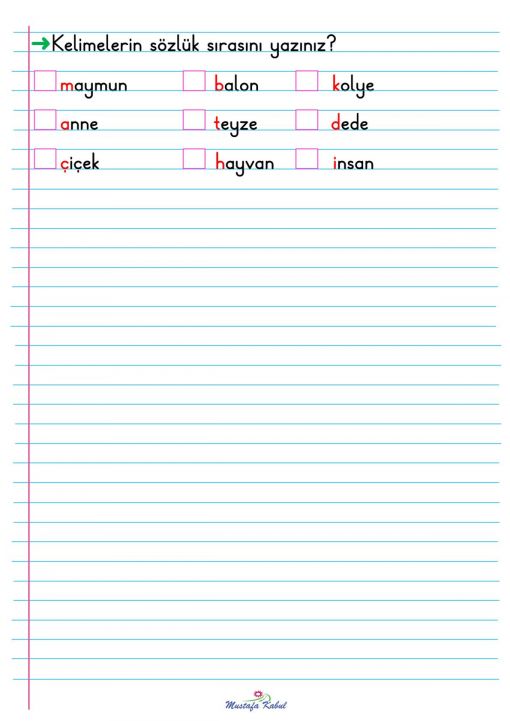 →Kelimelerin sözlük sırasını yazınız?
maymun balon kolye
anne teyze dede
çiçek hayvan insan
Mustafa Kabul